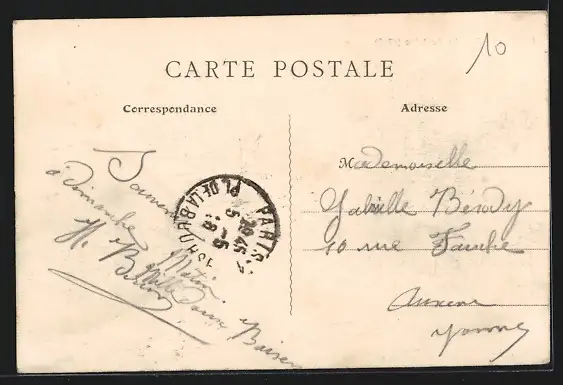 10
CARTE POSTALE
Correspondance
Adresse
Souvenir
à dimanche Matin
Mille doux Baisers
H.
PARIS-1
PL. DE LA BOURSE
Mademoiselle
Gabrielle
10 rue
Auxerre
Yonne